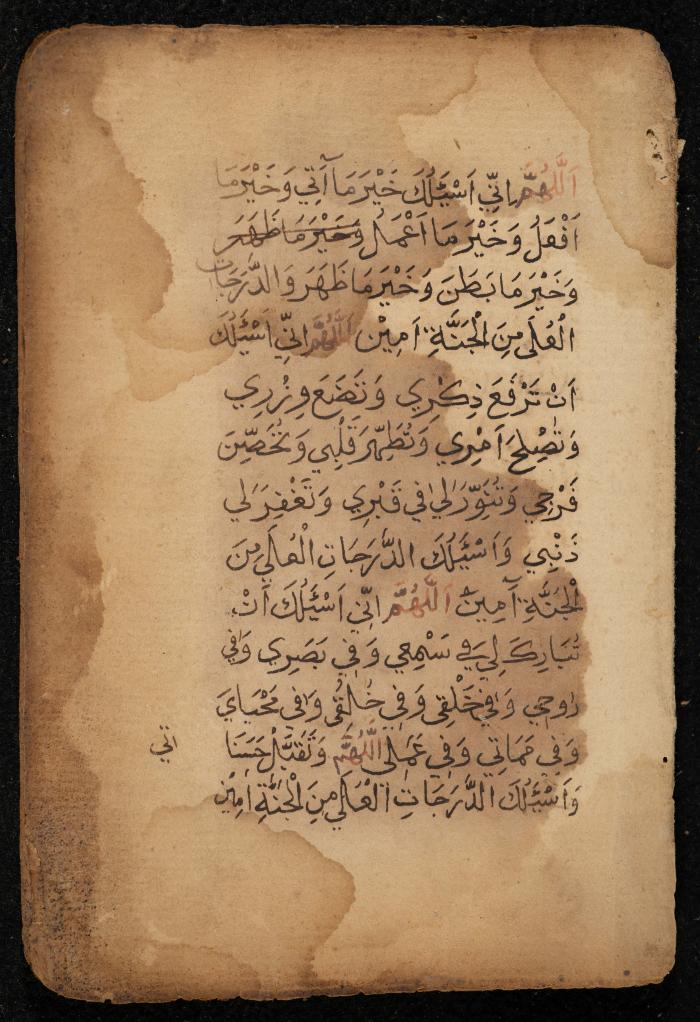 اَللّٰهُمَّ اِنِّي اَسْئَلُكَ خَيْرَ مَا اٰتِي وَخَيْرَ مَا
اَفْعَلُ وَخَيْرَ مَا اَعْمَلُ وَخَيْرَ مَا ظَهَرَ
وَخَيْرَ مَا بَطَنَ وَخَيْرَ مَا ظَهَرَ وَالدَّرَجَاتِ
الْعُلَى مِنَ الْجَنَّةِ اٰمِيْن اَللّٰهُمَّ اِنِّي اَسْئَلُكَ
اَنْ تَرْفَعَ ذِكْرِي وَتَضَعَ وِزْرِي
وَتُصْلِحَ اَمْرِي وَتُطَهِّرَ قَلْبِي وَتُحَصِّنَ
فَرْجِي وَتُنَوِّرَ لِي فِي قَبْرِي وَتَغْفِرَ لِي
ذَنْبِي وَاَسْئَلُكَ الدَّرَجَاتِ الْعُلَى مِنَ
الْجَنَّةِ اٰمِيْن اَللّٰهُمَّ اِنِّي اَسْئَلُكَ اَنْ
تُبَارِكَ لِي فِي سَمْعِي وَفِي بَصَرِي وَفِي
رُوحِي وَفِي خَلْقِي وَفِي خَالِقِي وَفِي مَحْيَايَ
وَفِي مَمَاتِي وَفِي عَمَلِي اَللّٰهُمَّ وَتَقَبَّلْ حَسَنَا
تِي
وَاَسْئَلُكَ الدَّرَجَاتِ الْعُلَى مِنَ الْجَنَّةِ اٰمِيْن